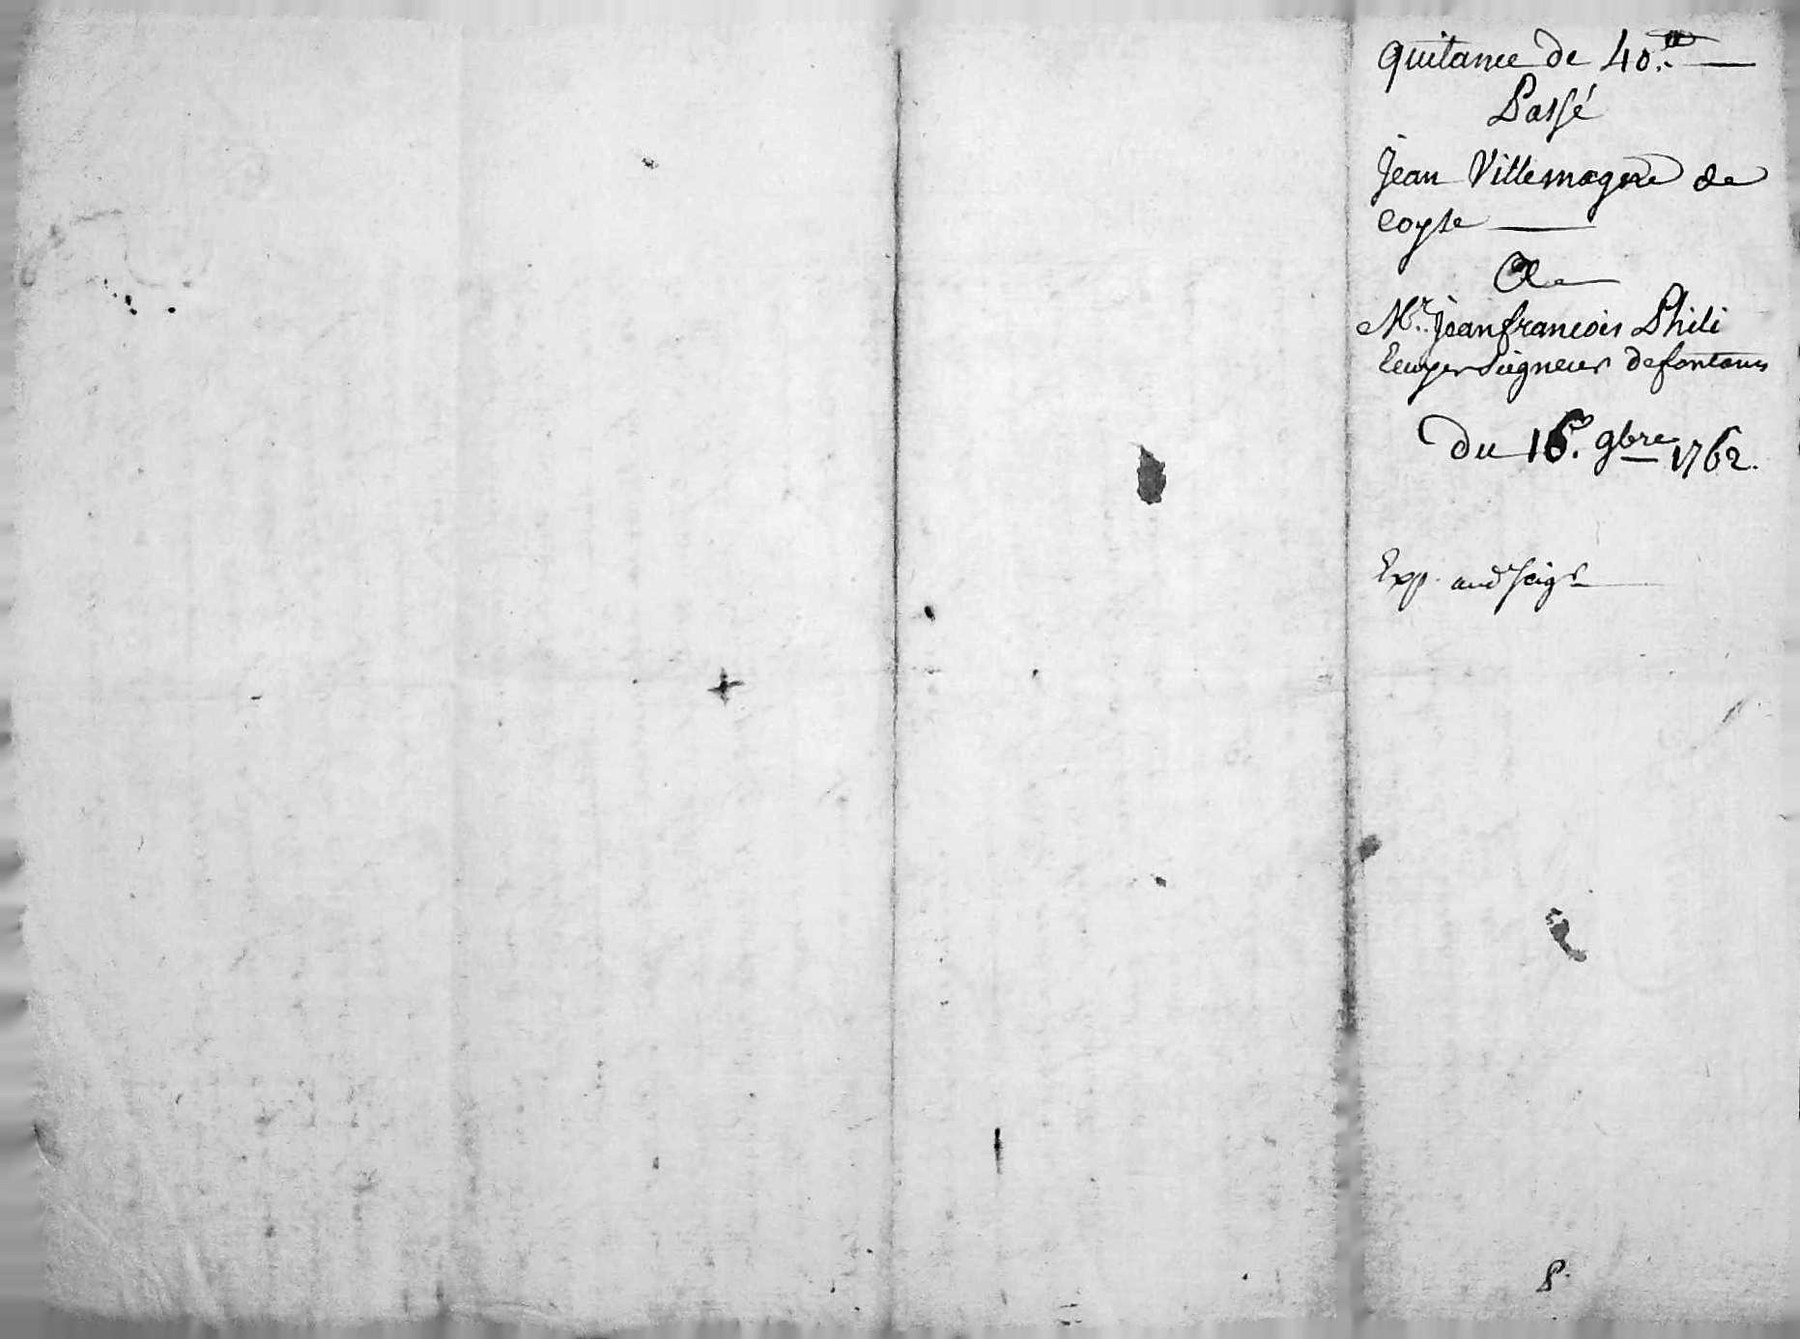 quitance de 40.tt
Passé
Jean Villemagne de
Coyse
A
Mr. jean francois Phili
Ecuyer Seigneur de fontanes
du 16. 9bre 1762.
Exp. aud Seigr
8.